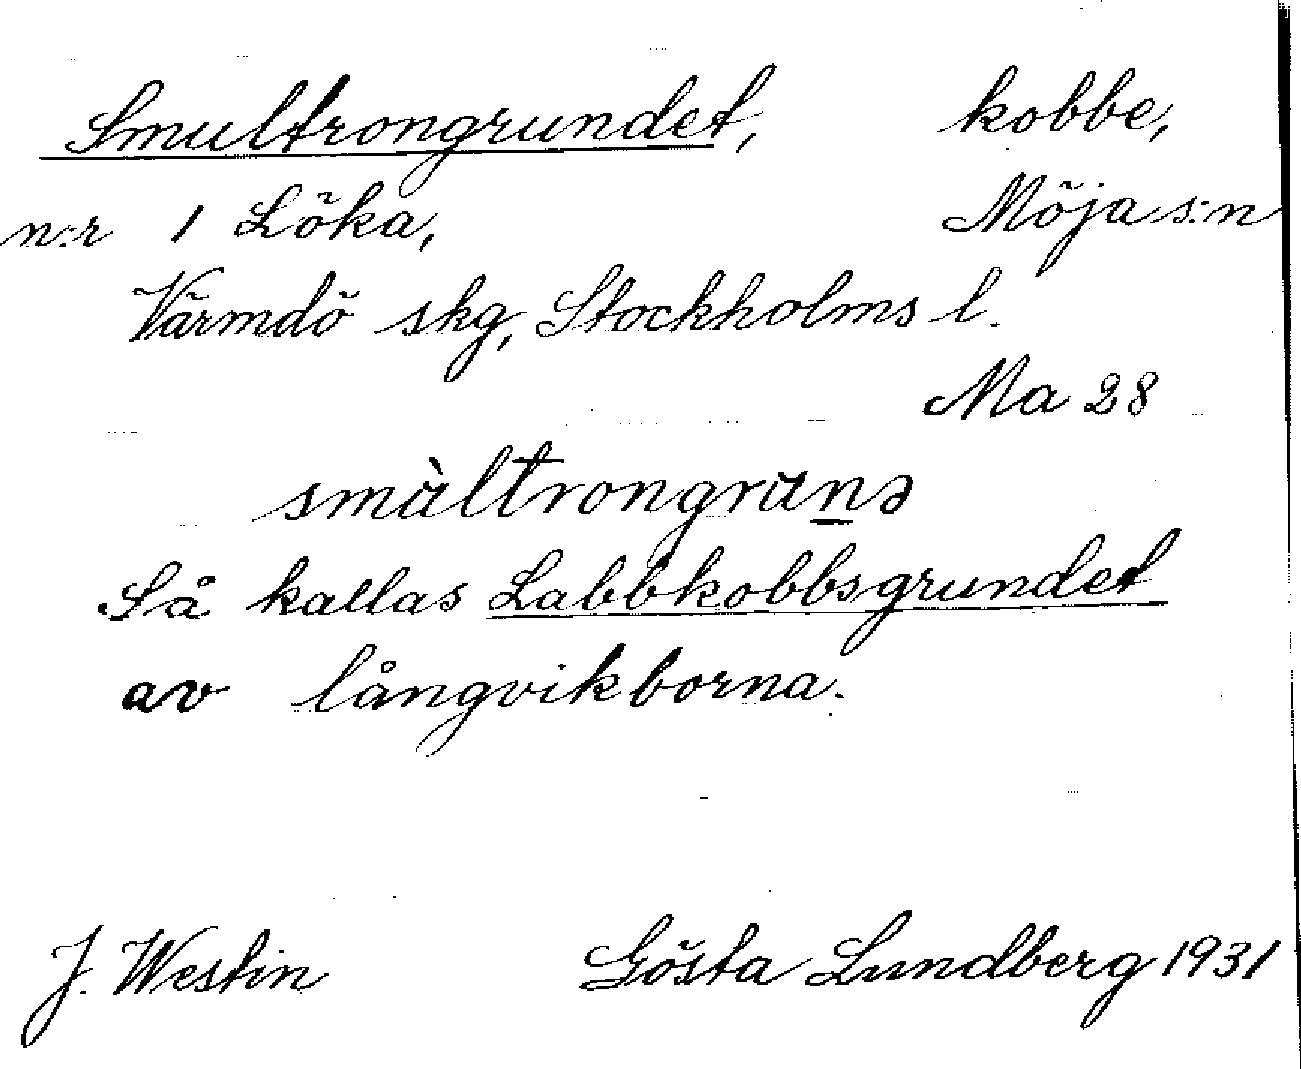 Smultrongrundet, kobbe,
n:r 1 Löka, Möja s:n
Värmdö skg, Stockholms l.
Ma 28
smùltrongrunə
Så kallas Labbkobbsgrundet
av långvikborna.
J. Westin Gösta Lundberg 1931